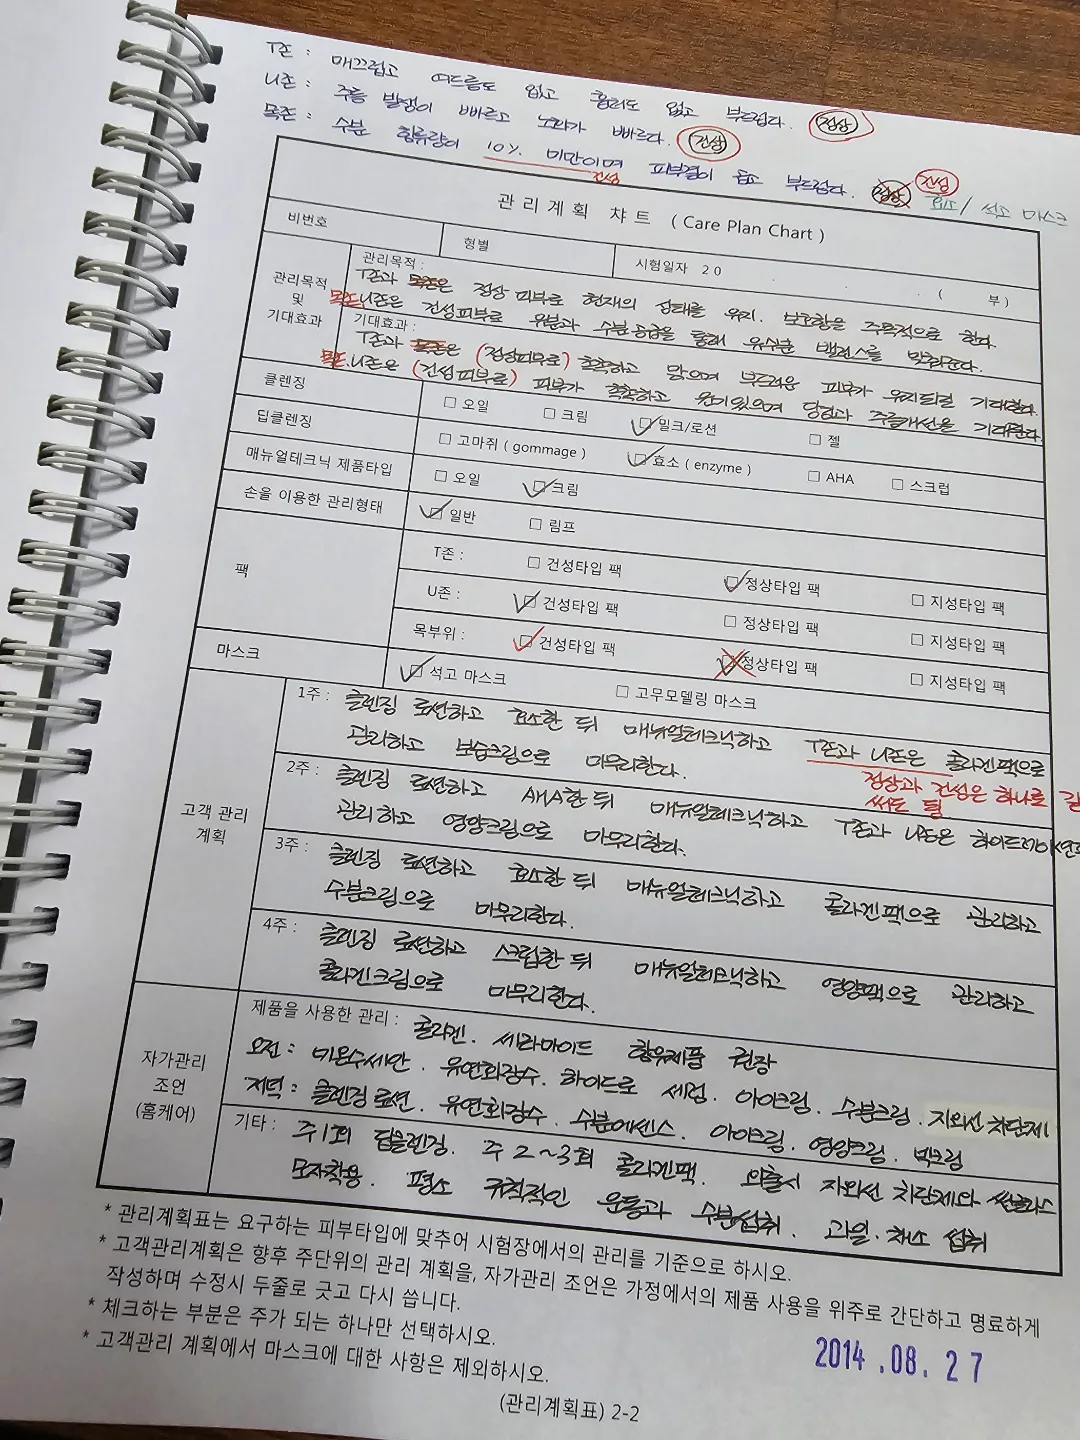 T존 : 매끄럽고 여드름도 없고 흉터도 없고 부드럽다. 정상
U존 : 주름 발생이 빠르고 노화가 빠르다. 건성
목존 : 수분 함유량이 10% 미만이며 피부결이 곱고 부드럽다. 정상 건성
건성
효소 / 석고 마스크
관리계획 챠트 ( Care Plan Chart )
비번호 형별 시험일자 20 . . ( 부 )
관리목적 및 기대효과
관리목적 :
T존과 목존은 정상피부로 현재의 상태를 유지. 보호함을 주목적으로 한다.
목존, U존은 건성피부로 유분과 수분공급을 통해 유수분 밸런스를 맞춰준다.
기대효과 :
T존과 목존은 (정상피부로) 촉촉하고 맑으며 부드러운 피부가 유지되길 기대한다.
목존, U존은 (건성피부로) 피부가 촉촉하고 윤기있으며 당김과 주름개선을 기대한다.
클렌징 □ 오일 □ 크림 ☑ 밀크/로션 □ 젤
딥클렌징 □ 고마쥐 ( gommage ) ☑ 효소 ( enzyme ) □ AHA □ 스크럽
매뉴얼테크닉 제품타입 □ 오일 ☑ 크림
손을 이용한 관리형태 ☑ 일반 □ 림프
팩
T존 : □ 건성타입 팩 ☑ 정상타입 팩 □ 지성타입 팩
U존 : ☑ 건성타입 팩 □ 정상타입 팩 □ 지성타입 팩
목부위 : ☑ 건성타입 팩 ☒ 정상타입 팩 □ 지성타입 팩
마스크 ☑ 석고 마스크 □ 고무모델링 마스크
고객 관리 계획
1주 : 클렌징 로션하고 효소한 뒤 매뉴얼테크닉하고 T존과 U존은 콜라겐팩으로
관리하고 보습크림으로 마무리한다.
정상과 건성은 하나로
써도 됨
2주 : 클렌징 로션하고 AHA한 뒤 매뉴얼테크닉하고 T존과 U존은
관리하고 영양크림으로 마무리한다.
3주 : 클렌징 로션하고 효소한 뒤 매뉴얼테크닉하고 콜라겐팩으로 관리하고
수분크림으로 마무리한다.
4주 : 클렌징 로션하고 스크럽한 뒤 매뉴얼테크닉하고 영양팩으로 관리하고
콜라겐크림으로 마무리한다.
자가관리 조언 (홈케어)
제품을 사용한 관리 : 콜라겐. 세라마이드 함유제품 권장
오전 : 미온수세안. 유연화장수. 하이드로 세럼. 아이크림. 수분크림. 자외선 차단제
저녁 : 클렌징 로션. 유연화장수. 수분에센스. 아이크림. 영양크림. 넥크림
기타 : 주1회 딥클렌징. 주 2~3회 콜라겐팩. 외출시 자외선 차단제와 썬글라스
모자착용. 평소 규칙적인 운동과 수분섭취. 과일. 채소 섭취
* 관리계획표는 요구하는 피부타입에 맞추어 시험장에서의 관리를 기준으로 하시오.
* 고객관리계획은 향후 주단위의 관리 계획을, 자가관리 조언은 가정에서의 제품 사용을 위주로 간단하고 명료하게
작성하며 수정시 두줄로 긋고 다시 씁니다.
* 체크하는 부분은 주가 되는 하나만 선택하시오.
* 고객관리 계획에서 마스크에 대한 사항은 제외하시오.
2014.08.27
(관리계획표) 2-2